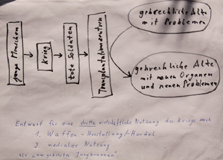 junge Menschen
Krieg
tote Soldaten
Transplantationszentren
gebrechliche Alte
mit Problemen
gebrechliche Alte
mit neuen Organen
und neuen Problemen
Entwurf für eine dritte wirtschaftliche Nutzung des Kriegs nach
1. Waffen-Herstellung/Handel
2. medialer Nutzung
als „